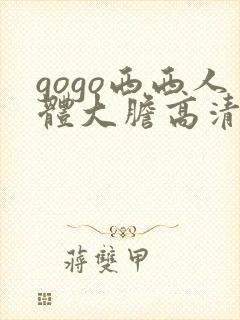 gogo西西人
體大膽高清
蔣雙甲